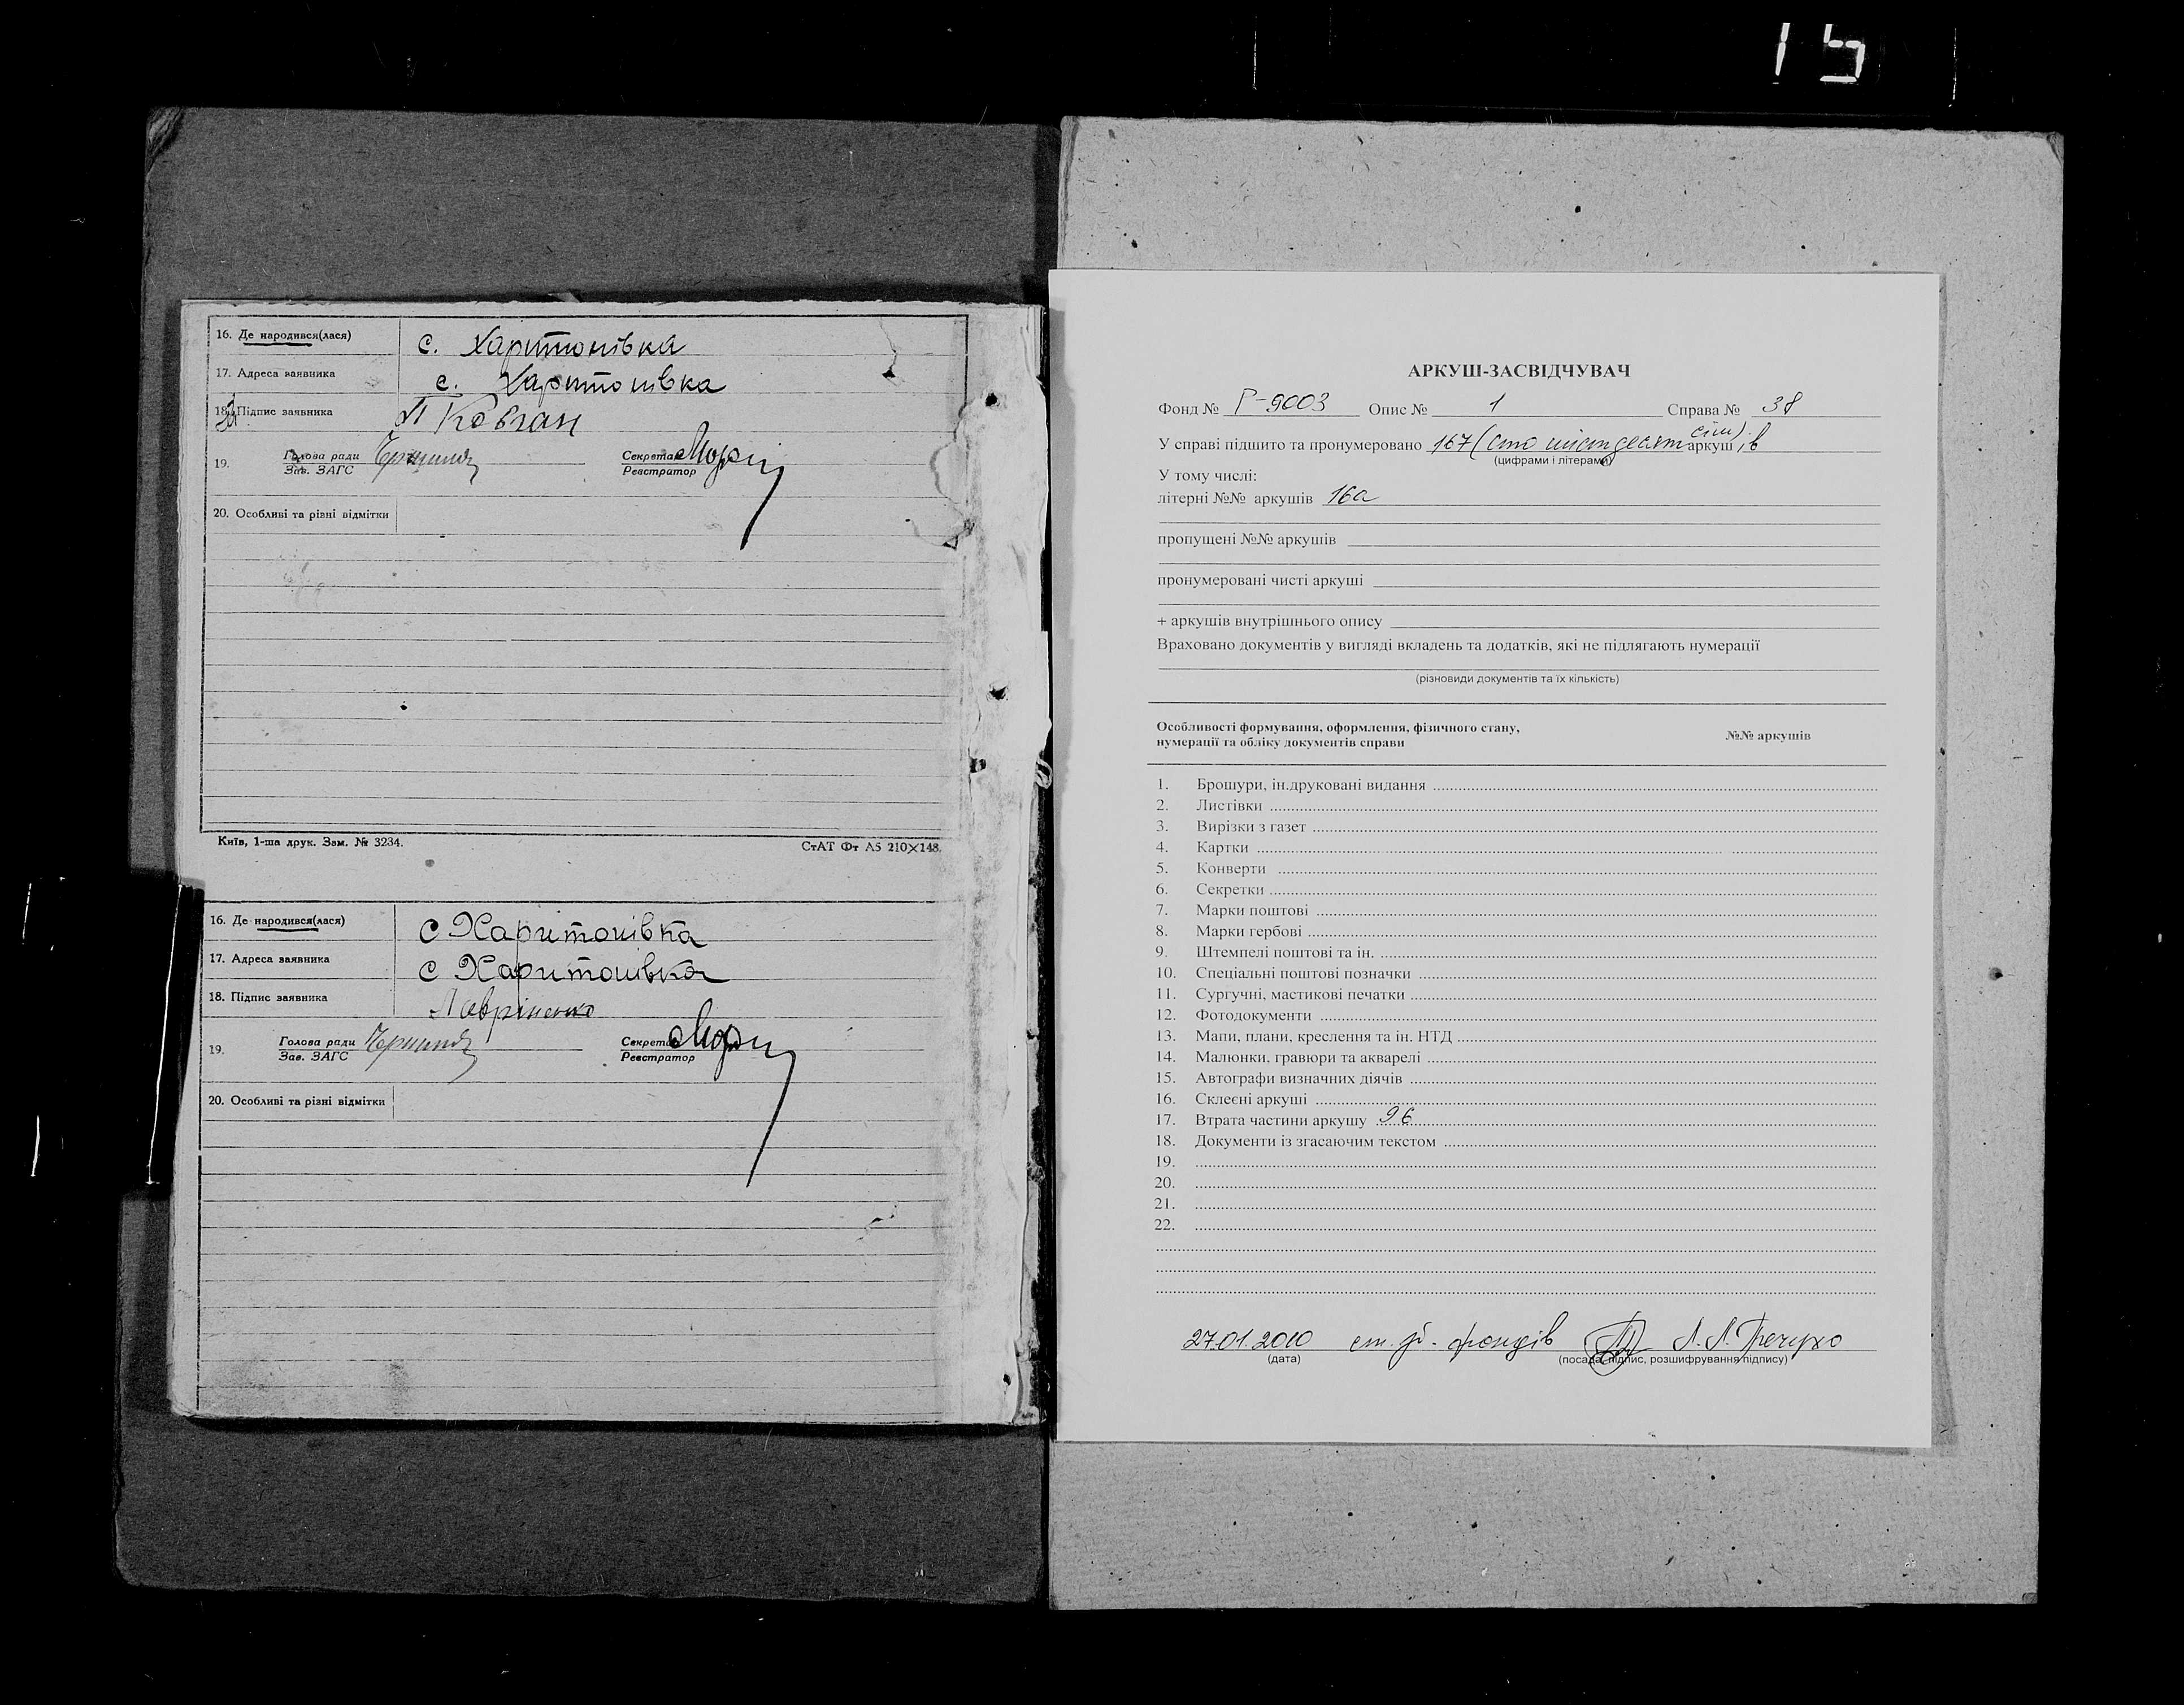 15
16. Де народився(лася) с. Харитонівка
17. Адреса заявника с. Харитонівка
18. Підпис заявника П Ковган
19. Голова ради Секретар
Зав. ЗАГС Реєстратор
20. Особливі та рівні відмітки
Київ, 1-ша друк. Зам. № 3234. СтАТ Фт А5 210×148.
16. Де народився(лася) с Харитонівка
17. Адреса заявника с Харитонівка
18. Підпис заявника Лавріненко
19. Голова ради Секретар
Зав. ЗАГС Реєстратор
20. Особливі та різні відмітки
АРКУШ-ЗАСВІДЧУВАЧ
Фонд № Р-9003 Опис № 1 Справа № 38
У справі підшито та пронумеровано 167 (сто шістдесят сім) аркушів
(цифрами і літерами)
У тому числі:
літерні №№ аркушів 16а
пропущені №№ аркушів
пронумеровані чисті аркуші
+ аркушів внутрішнього опису
Враховано документів у вигляді вкладень та додатків, які не підлягають нумерації
(різновиди документів та їх кількість)
Особливості формування, оформлення, фізичного стану,
нумерації та обліку документів справи №№ аркушів
1. Брошури, ін.друковані видання
2. Листівки
3. Вирізки з газет
4. Картки
5. Конверти
6. Секретки
7. Марки поштові
8. Марки гербові
9. Штемпелі поштові та ін.
10. Спеціальні поштові позначки
11. Сургучні, мастикові печатки
12. Фотодокументи
13. Мапи, плани, креслення та ін. НТД
14. Малюнки, гравюри та акварелі
15. Автографи визначних діячів
16. Склеєні аркуші
17. Втрата частини аркушу 96
18. Документи із згасаючим текстом
19.
20.
21.
22.
27.01.2010 ст. зб. фондів
(дата) (посада, підпис, розшифрування підпису)